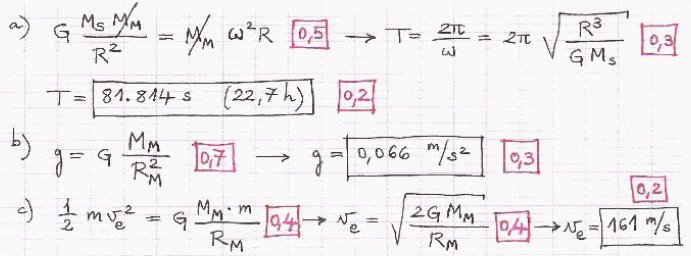 a) G M_S M_M / R² = M_M ω² R 0,5 → T = 2π / ω = 2π √(R³ / G M_S) 0,3
T = 81.814 s (22,7 h) 0,2
b) g = G M_M / R_M² 0,7 → g = 0,066 m/s² 0,3
c) ½ m v_e² = G M_M · m / R_M 0,4 → v_e = √(2 G M_M / R_M) 0,4 → v_e = 161 m/s 0,2